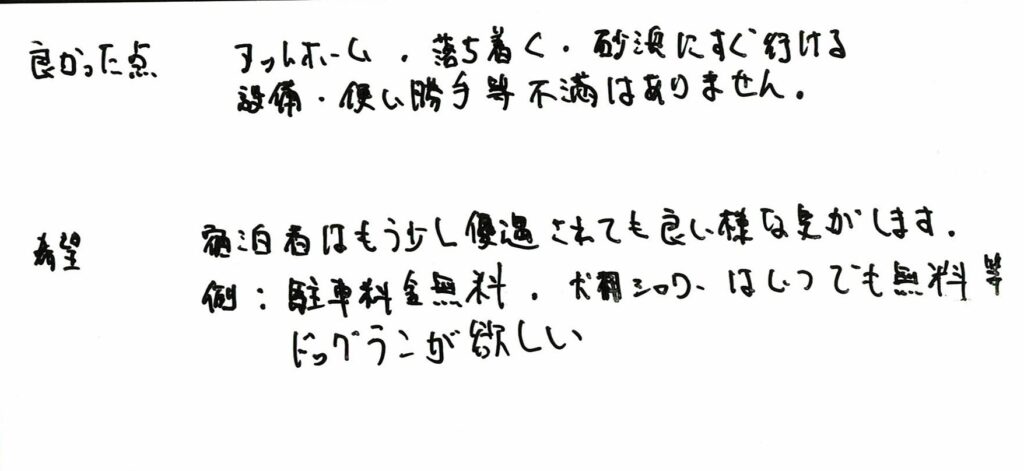 良かった点 アットホーム・落ち着く・砂浜にすぐ行ける
設備・使い勝手等不満はありません。
希望 宿泊者はもう少し優遇されても良い様な気がします。
例:駐車料金無料・犬用シャワーはいつでも無料等
ドッグランが欲しい